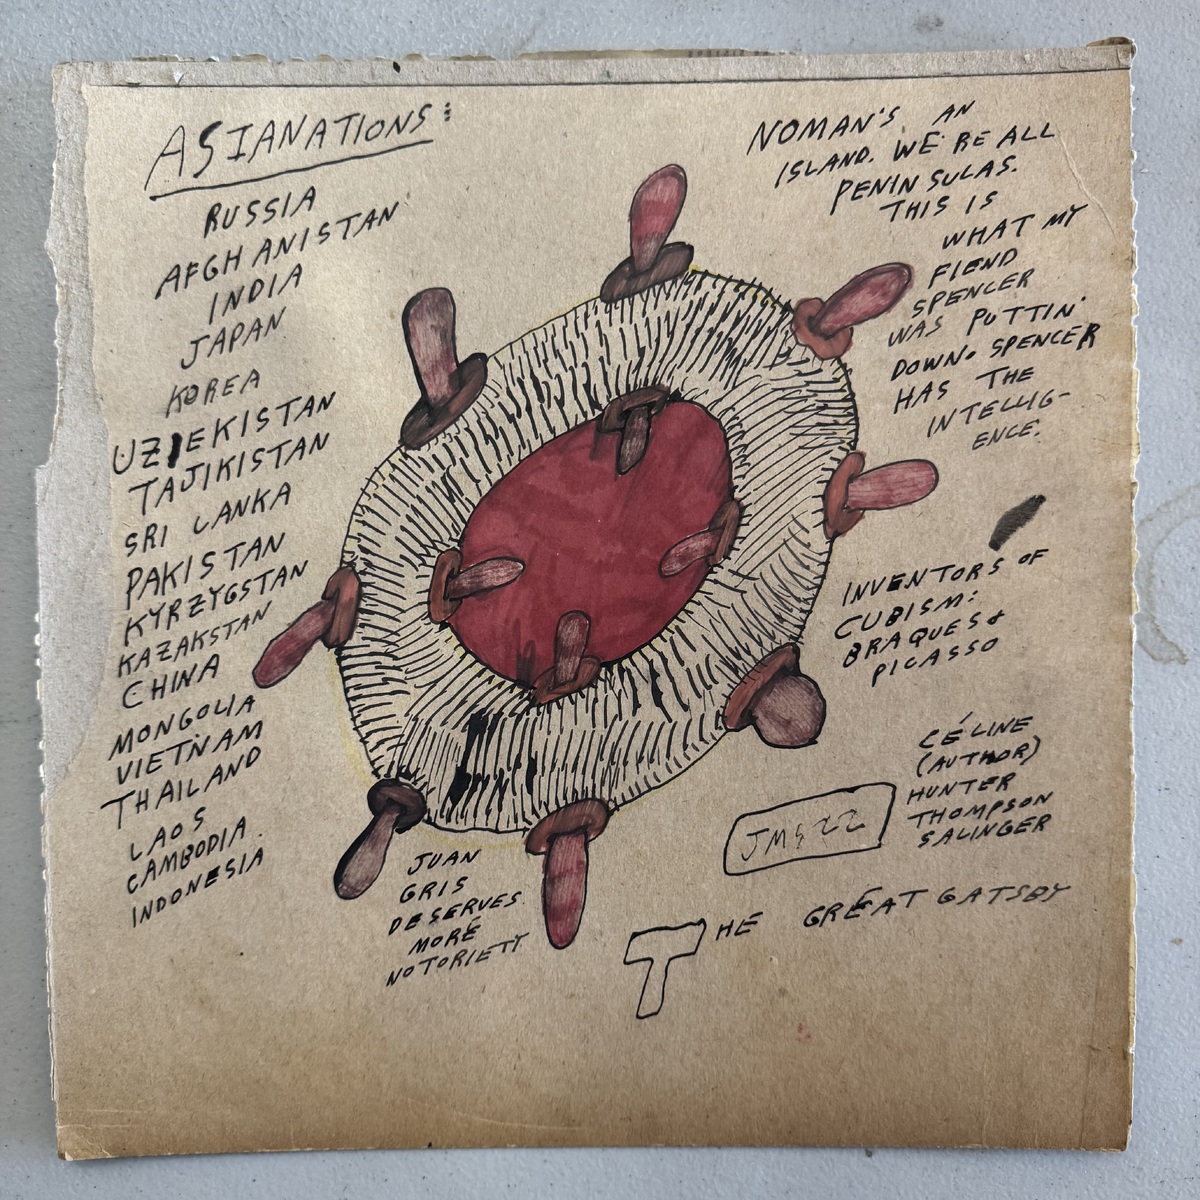 ASIANATIONS:
RUSSIA
AFGHANISTAN
INDIA
JAPAN
KOREA
UZIEKISTAN
TAJIKISTAN
SRI LANKA
PAKISTAN
KYRZYGSTAN
KAZAKSTAN
CHINA
MONGOLIA
VIETNAM
THAILAND
LAOS
CAMBODIA
INDONESIA
NOMAN'S AN
ISLAND. WE'RE ALL
PENINSULAS.
THIS IS
WHAT MY
FIEND
SPENCER
WAS PUTTIN'
DOWN. SPENCER
HAS THE
INTELLIG-
ENCE.
INVENTORS OF
CUBISM:
BRAQUES &
PICASSO
CÉLINE
(AUTHOR)
HUNTER
THOMPSON
SALINGER
JMS22
JUAN
GRIS
DESERVES
MORÉ
NOTORIETY
THE GRÉAT GATSBY